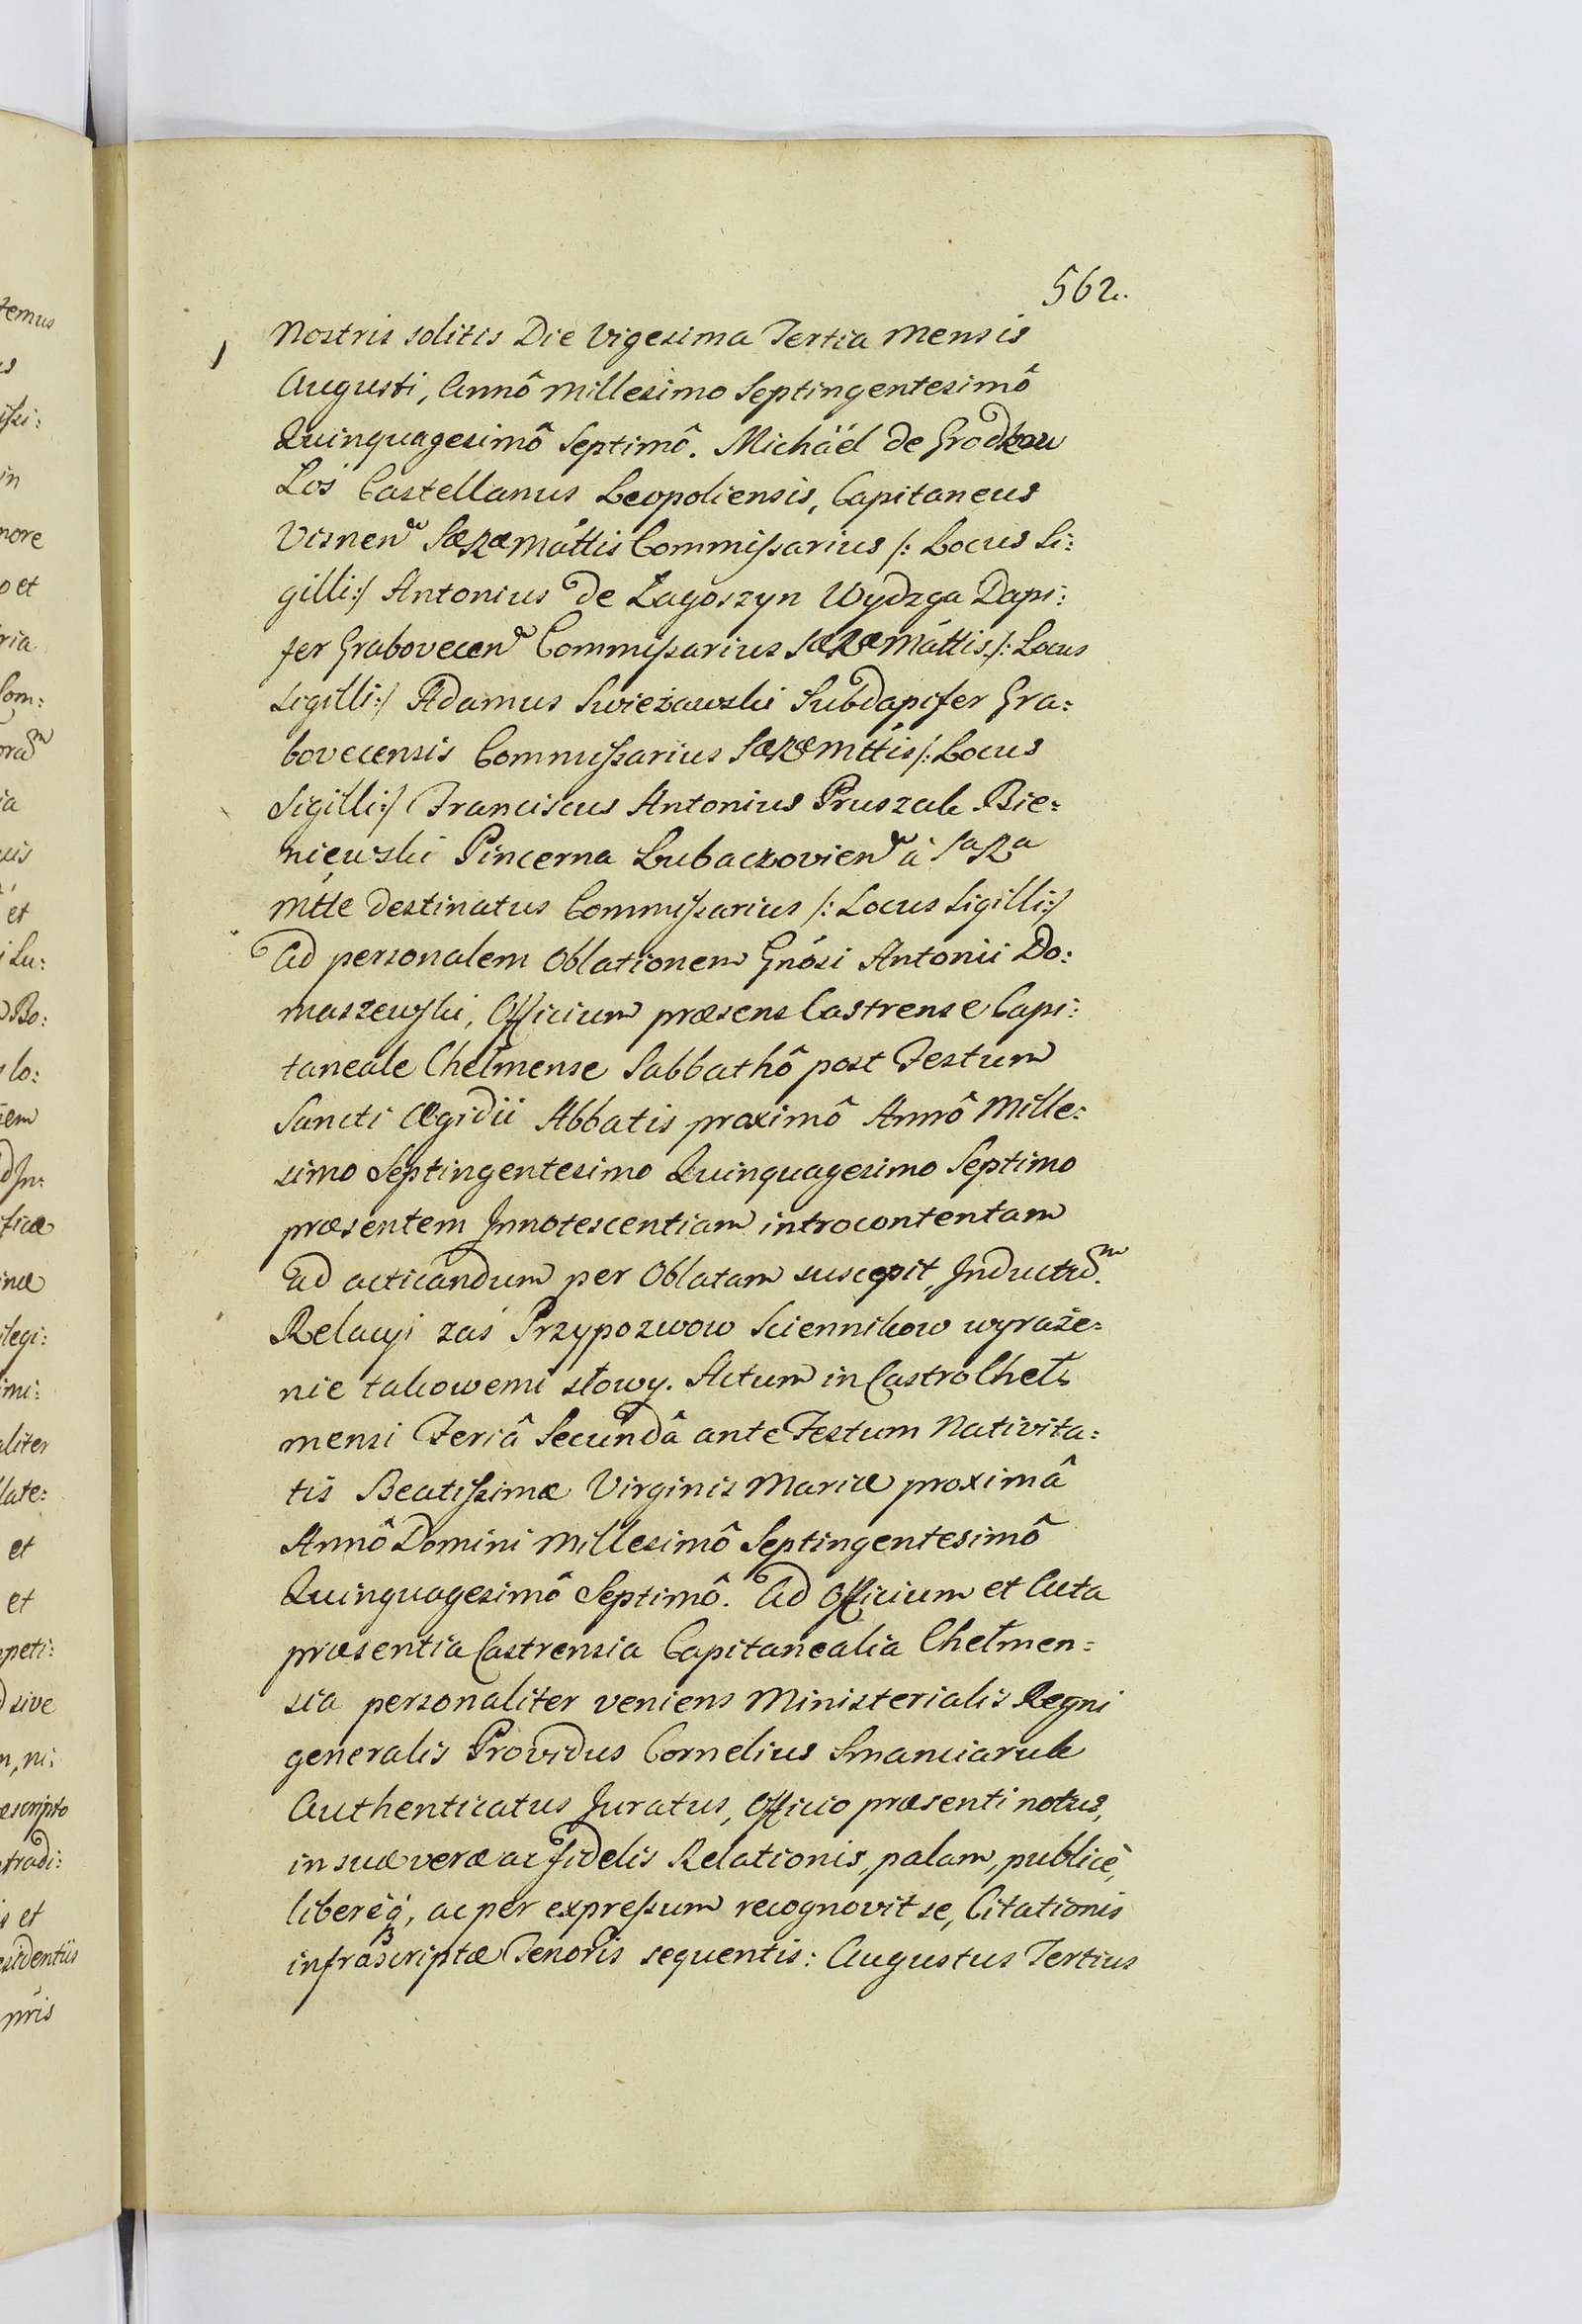 562.
Nostris solitis Die Vigesima Tertia Mensis
Augusti, Annô Millesimo Septingentesimô
Quinquagesimô Septimô. Michäél de Grodkow
Łoś Castellanus Leopoliensis, Capitaneus
Visnen SæRæMáttis Commissarius /: Locus Si:
gilli:/ Antonius de Łagoszyn Wydzga Dapi:
fer Grabovecen Commissarius SæRæMáttis /: Locus
Sigilli:/ Adamus Swieżawski Subdapifer Gra:
bovecensis Commissarius SæRæMttis /: Locus
Sigilli:/ Franciscus Antonius Pruszak Bie:
niewski Pincerna Lubaczovien à SaRa
Mtte destinatus Commissarius /: Locus Sigilli:/
Ad personalem Oblationem Gnósi Antonii Do:
maszewski, Officium præsens Castrense Capi:
taneale Chełmense Sabbathô post Festum
Sancti Ægidii Abbatis proximô Annô Mille:
simo Septingentesimo Quinquagesimo Septimo
præsentem Innotescentiam introcontentam
ad acticandum per Oblatam suscepit, Inductūm.
Relacyi zaś Przypozwow Sciennikow wyraże:
nie takowemi słowy. Actum in Castro Cheł:
mensi Feriâ Secundâ ante Festum Nativita:
tis Beatissimæ Virginis Mariæ proximâ
Annô Domini Millesimô Septingentesimô
Quinquagesimô Septimô. Ad Officium et Acta
præsentia Castrensia Capitanealia Chełmen:
sia personaliter veniens Ministerialis Regni
generalis Providus Cornelius Smanciaruk
Authenticatus Juratus, Officio præsenti notus,
in suæ veræ ac fidelis Relationis, palam, publicè,
liberèq, ac per expressum recognovit se, Citationis
infrascriptæ Tenoris sequentis: Augustus Tertius